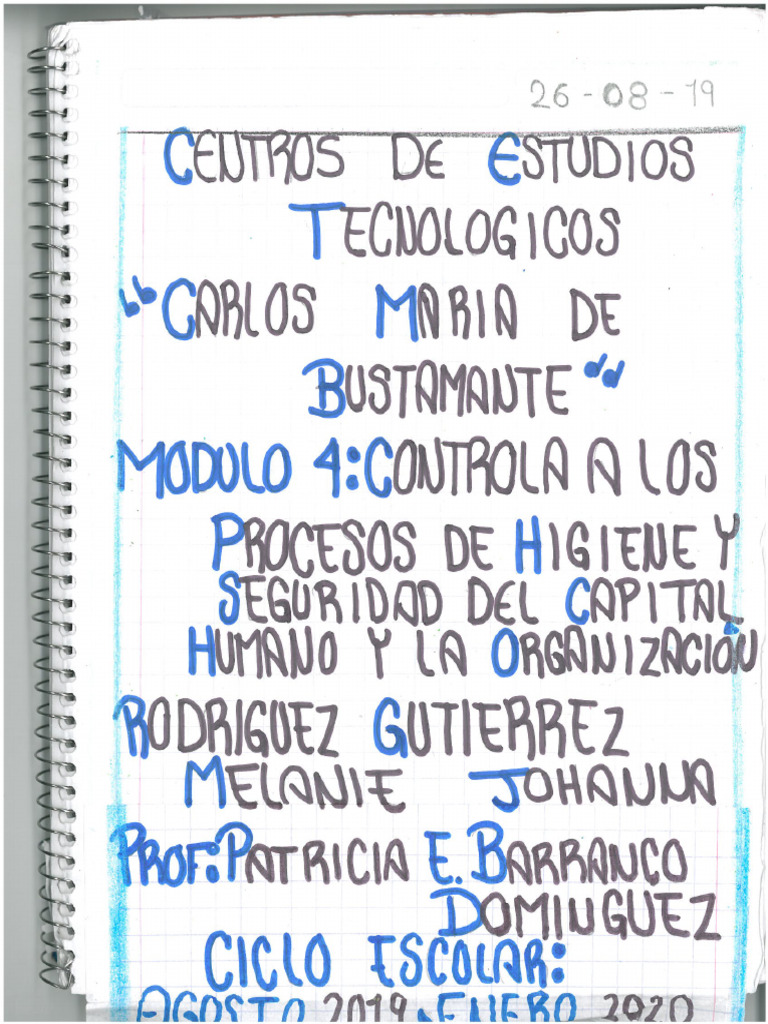 26-08-19
CENTROS DE ESTUDIOS
TECNOLOGICOS
"CARLOS MARIA DE
BUSTAMANTE"
MODULO 4: CONTROLA A LOS
PROCESOS DE HIGIENE Y
SEGURIDAD DEL CAPITAL
HUMANO Y LA ORGANIZACIÓN
RODRIGUEZ GUTIERREZ
MELANIE JOHANNA
PROF: PATRICIA E. BARRANCO
DOMINGUEZ
CICLO ESCOLAR:
AGOSTO 2019 - ENERO 2020